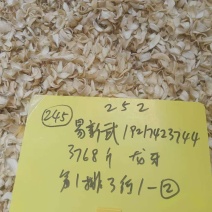 252
(245)
易新武 19217423744
3768斤 龙牙
第1排3行1-②